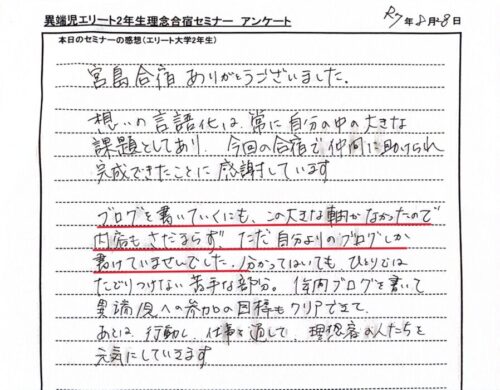 異端児エリート2年生理念合宿セミナー アンケート
R7年8月8日
本日のセミナーの感想(エリート大学2年生)
宮島合宿ありがとうございました。
想いの言語化は、常に自分の中の大きな
課題としてあり、今回の合宿で仲間に助けられ
完成できたことに感謝しています
ブログを書いていくにも、この大きな軸がなかったので
内容もさだまらず、ただ自分よりのブログしか
書けていませんでした。分かってはいても、ひとりでは
たどりつけない苦手な部分。年内ブログを書いて
異端児への参加の目標もクリアできて、
あとは、行動し、仕事を通して、理想客の人たちを
元気にしていきます